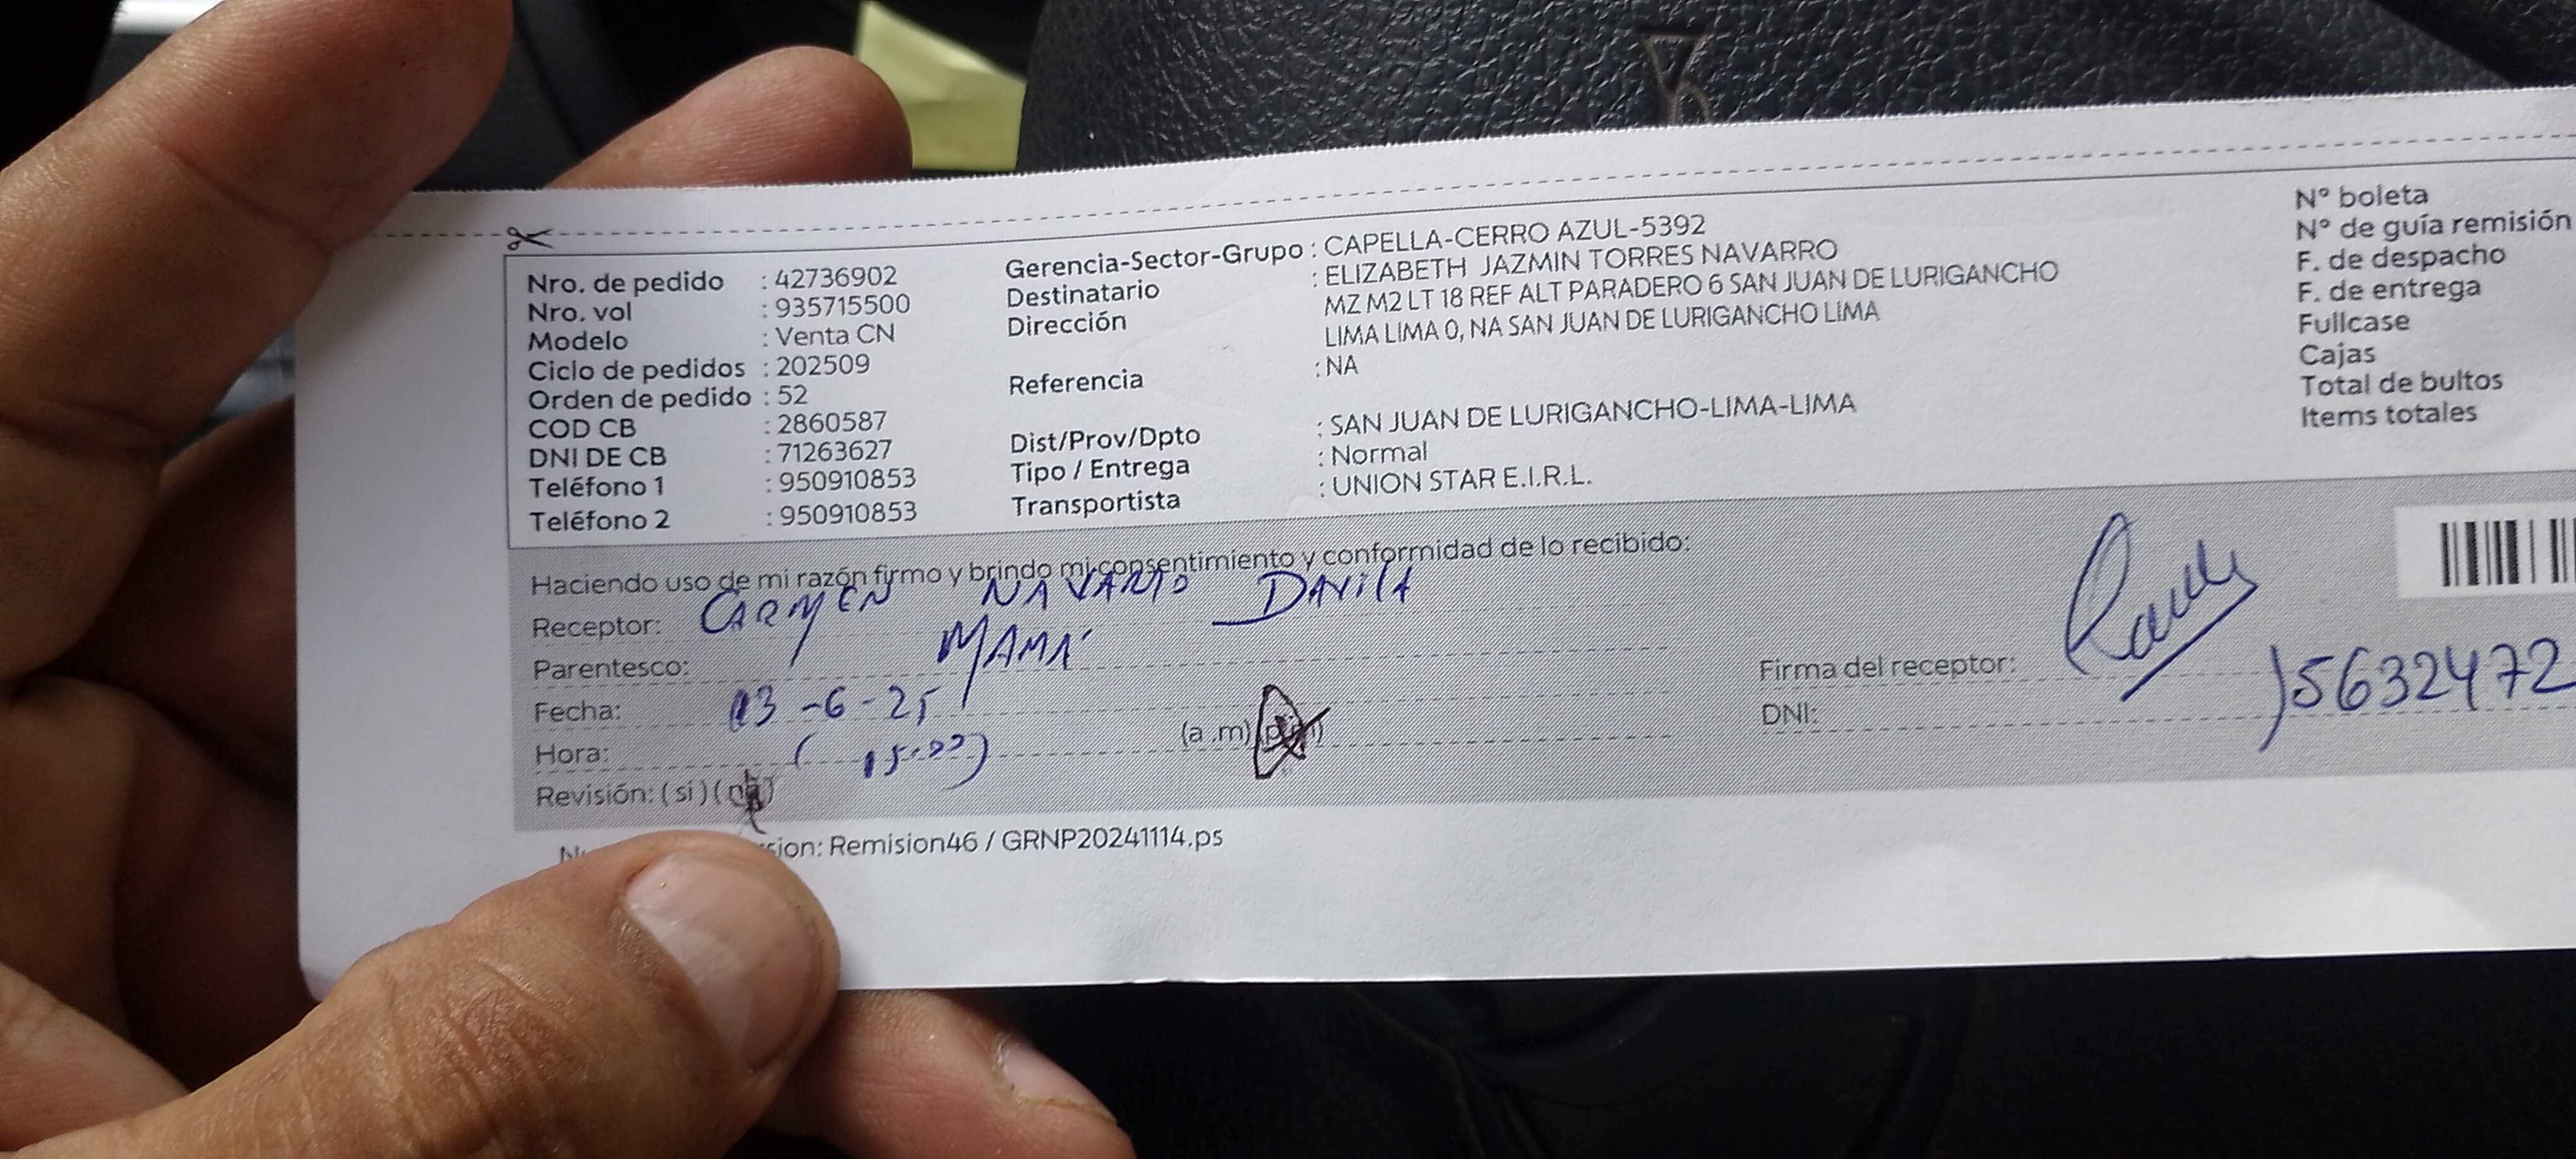 Nro. de pedido : 42736902
Nro. vol : 935715500
Modelo : Venta CN
Ciclo de pedidos : 202509
Orden de pedido : 52
COD CB : 2860587
DNI DE CB : 71263627
Teléfono 1 : 950910853
Teléfono 2 : 950910853
Gerencia-Sector-Grupo : CAPELLA-CERRO AZUL-5392
Destinatario : ELIZABETH JAZMIN TORRES NAVARRO
Dirección MZ M2 LT 18 REF ALT PARADERO 6 SAN JUAN DE LURIGANCHO
LIMA LIMA 0, NA SAN JUAN DE LURIGANCHO LIMA
Referencia : NA
Dist/Prov/Dpto : SAN JUAN DE LURIGANCHO-LIMA-LIMA
Tipo / Entrega : Normal
Transportista : UNION STAR E.I.R.L.
N° boleta
N° de guía remisión
F. de despacho
F. de entrega
Fullcase
Cajas
Total de bultos
Items totales
Haciendo uso de mi razón firmo y brindo mi consentimiento y conformidad de lo recibido:
Receptor: CARMEN NAVARRO DAVILA
Parentesco: MAMÁ
Fecha: 13-6-25
Hora: (15:00) (a.m) (p.m)
Revisión: (si) (no)
Firma del receptor:
DNI: 15632472
sion: Remision46 / GRNP20241114.ps